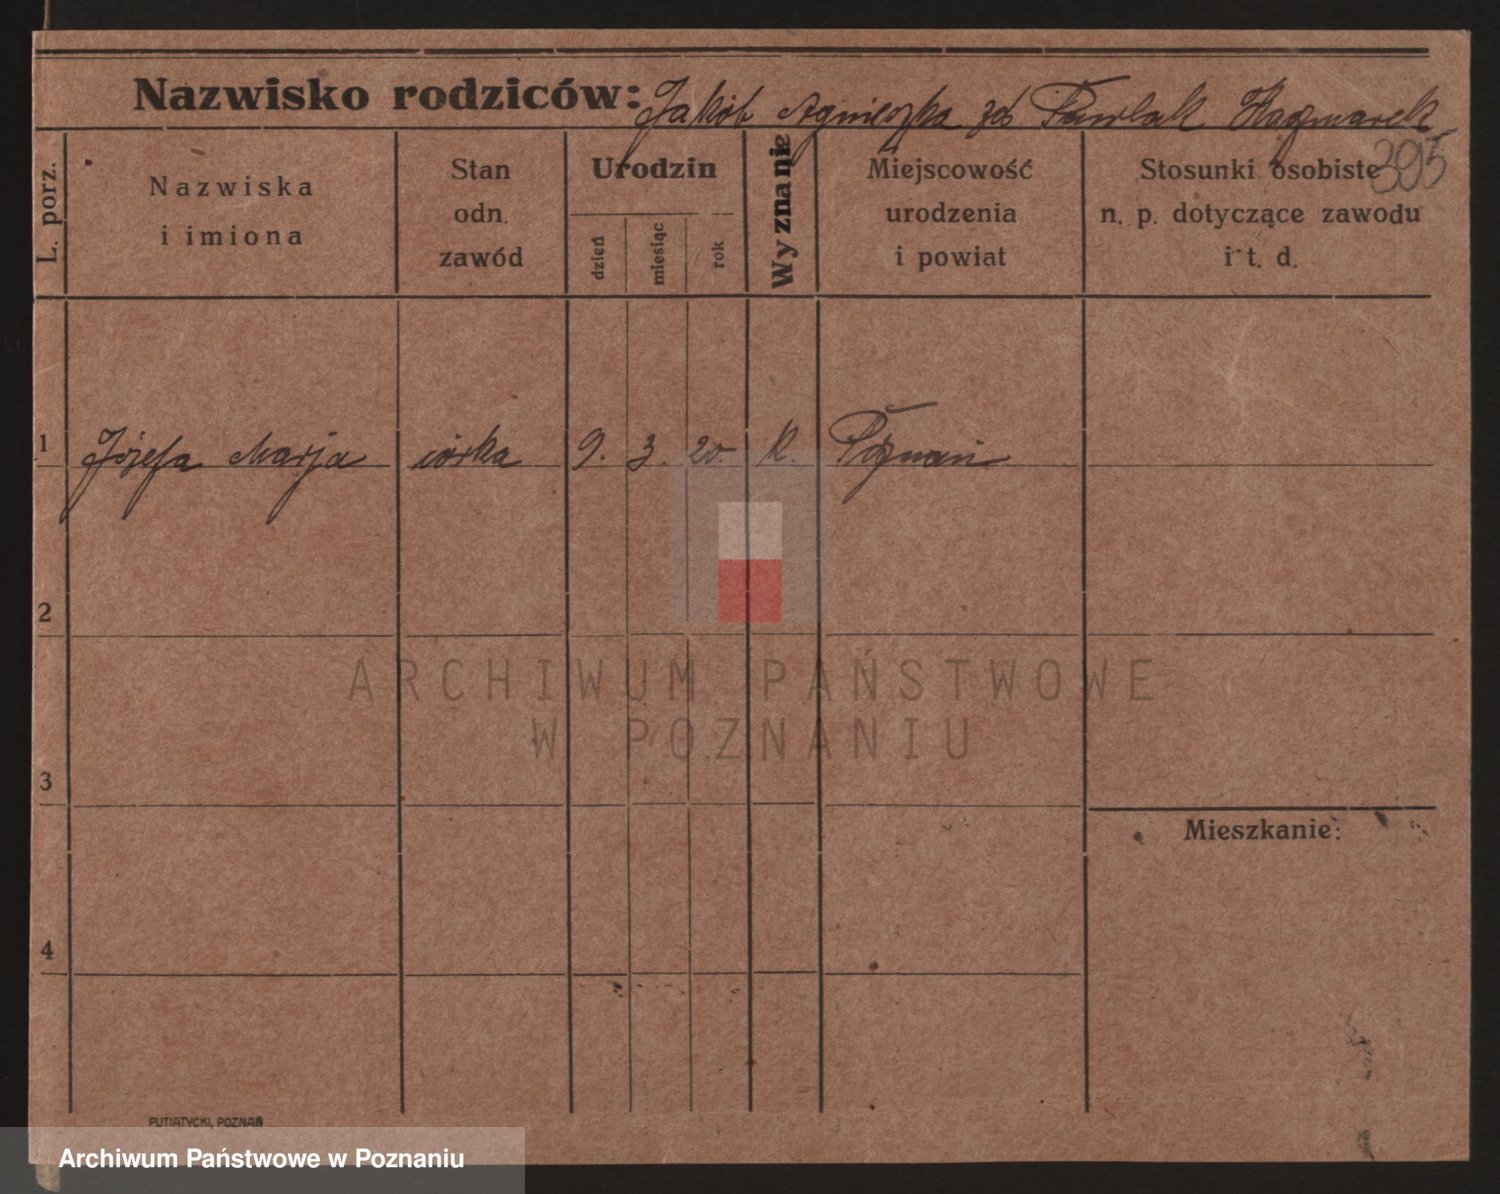 Nazwisko rodziców: Jakób Agnieszka zd Pawlak Kaczmarek
395
L. porz.
Nazwiska
i imiona
Stan
odn.
zawód
Urodzin
dzień
miesiąc
rok
Wyznanie
Miejscowość
urodzenia
i powiat
Stosunki osobiste
n. p. dotyczące zawodu
i t. d.
1 Józefa Marja córka 9. 3. 20. k. Poznań
2
ARCHIWUM PAŃSTWOWE
W POZNANIU
3
Mieszkanie:
4
PUTIATYCKI, POZNAŃ
Archiwum Państwowe w Poznaniu